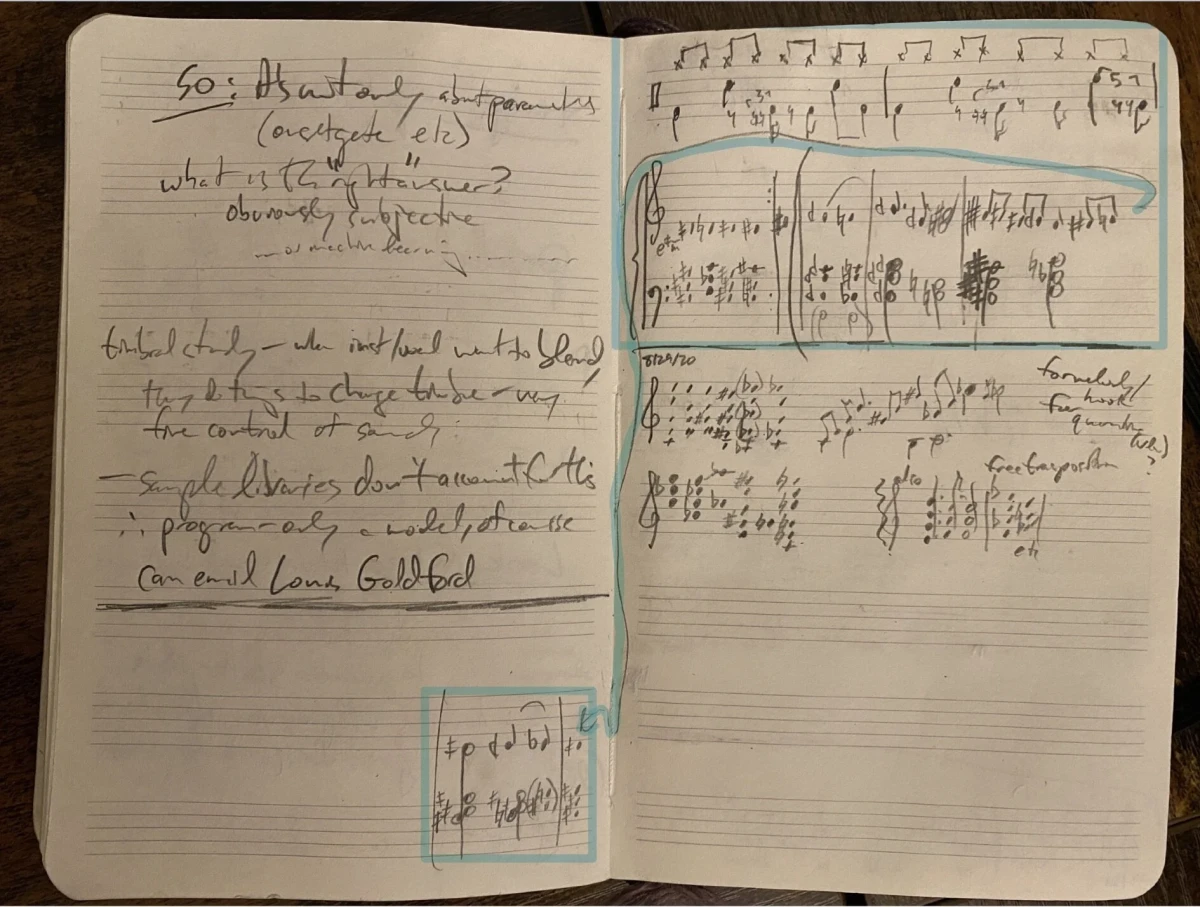 SO: It's not only about parameters
(onset gate etc)
what is the "right" answer?
obviously subjective
... or machine learning ...
timbral study – when inst/vocal want to blend,
they do things to change timbre – very
fine control of sound.
– sample libraries don't account for this
∴ program – only a model, of course
Can email Louis Goldford
8/29/20
for melody/
hook
for
(vln)
?
free transposition
etc